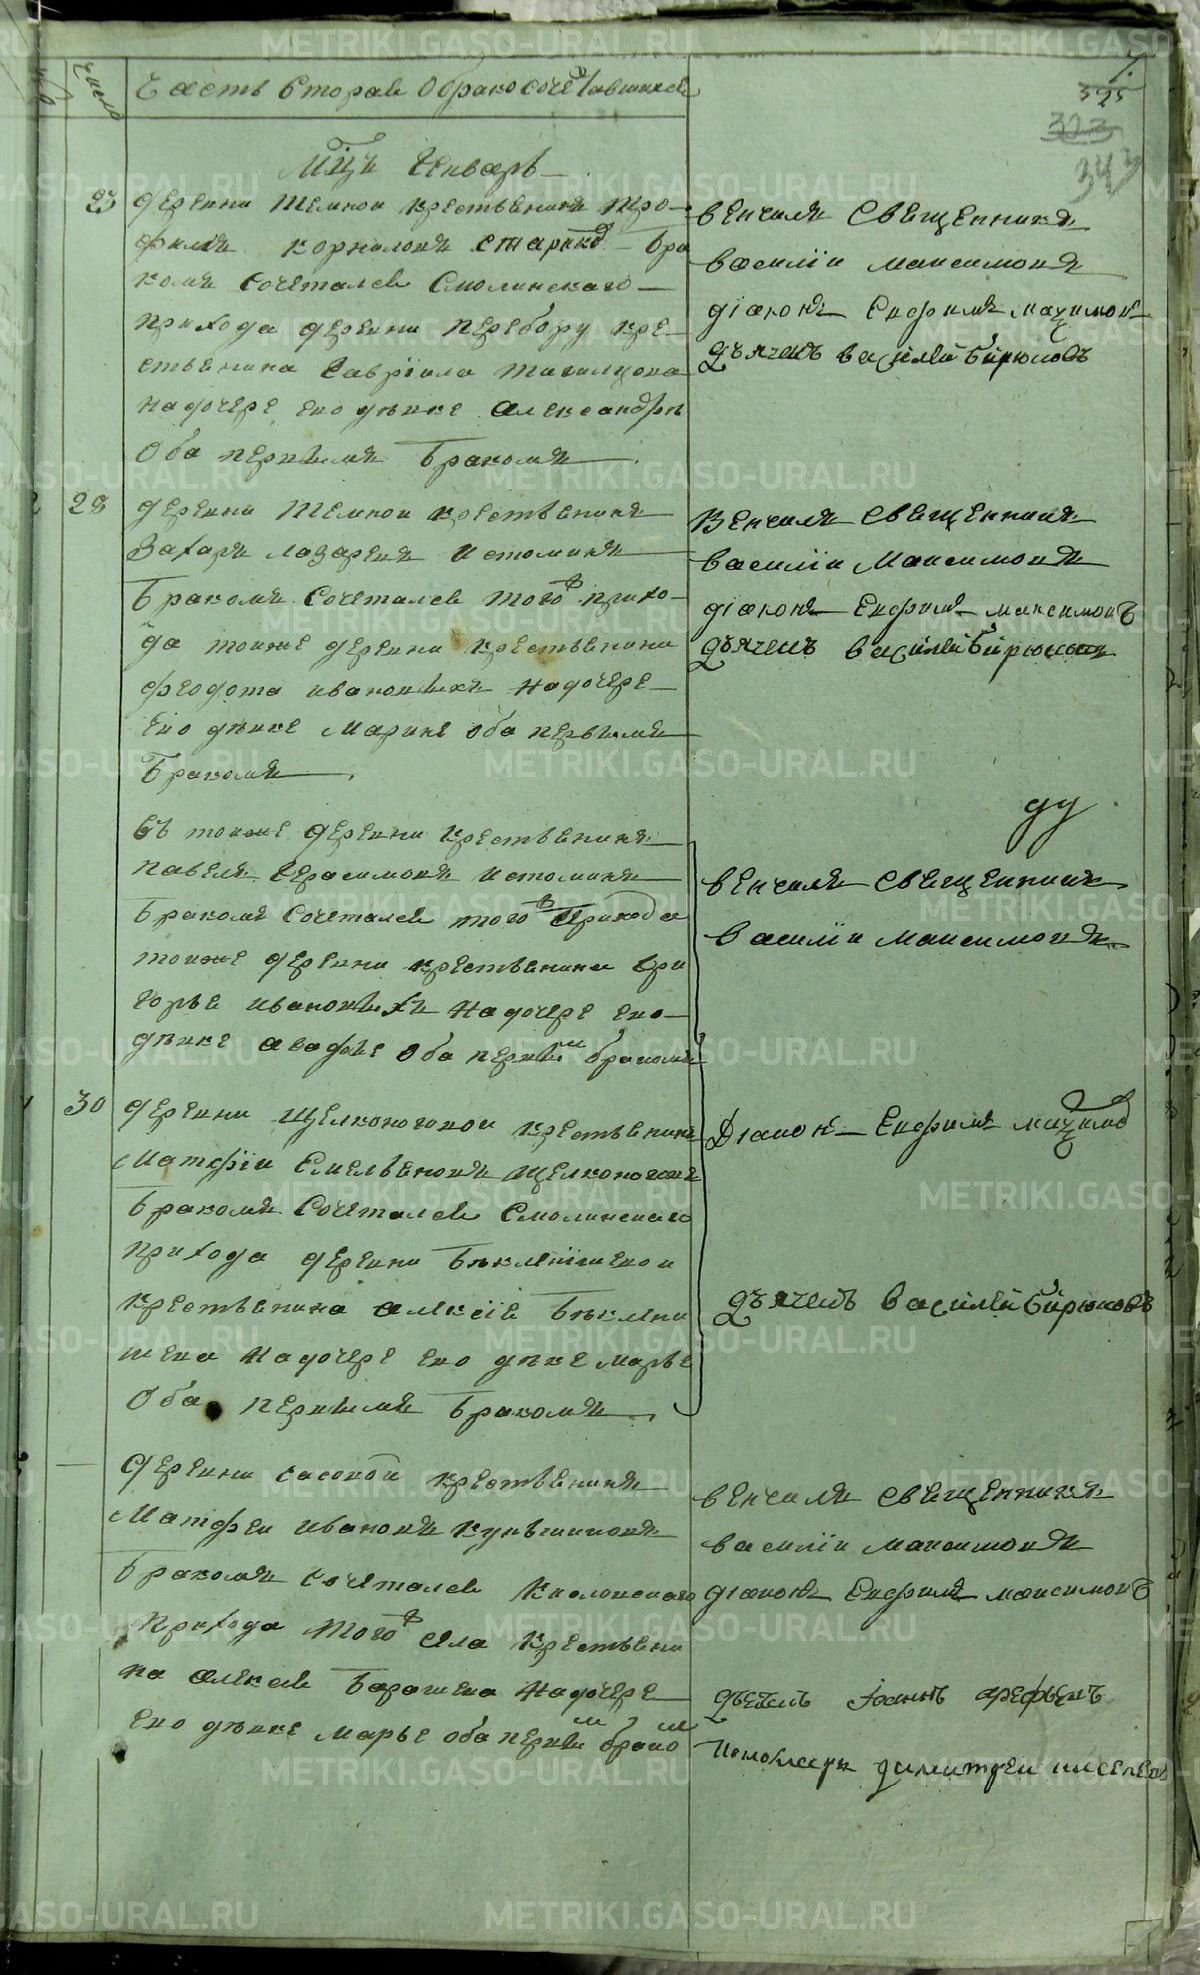 число
Часть вторая о бракосочетавшихся
7.
325
323
343
Мцъ Генварь
23 деревни Темной крестьянинъ Тро-
филъ Корниловъ Стариковъ бра
комъ сочетался Смолинскаго
прихода деревни Перебору кре-
стьянина Гавріила
на дочере ево девке Александре
оба первымъ бракомъ
венчалъ священникъ
василіи максимовъ
діаконъ Ефимъ максимовъ
дьячекъ василей бирюковъ
28 деревни Темной крестьянинъ
Захаръ Лазаревъ Истоминъ
бракомъ сочетался того прихо-
да тоиже деревни крестьянина
феодота ивановыхъ на дочере
ево девке Марине оба первымъ
бракомъ
венчалъ священникъ
василіи Максимовъ
діаконъ Ефимъ максимовъ
дьячекъ василей бирюковъ
въ тоиже деревни крестьянинъ
павелъ Герасимовъ Истоминъ
бракомъ сочетался того прихода
тоиже деревни крестьянина гри
горья ивановыхъ на дочере ево
девке агафье оба первым бракомъ
венчалъ священникъ
василіи максимовъ
30 деревни Щелконоговой крестьянинъ
Матфіи Емельяновъ щелконоговъ
бракомъ сочетался Смолинскаго
прихода деревни Беклемишевои
крестьянина алексіе Беклеми
шева на дочере ево девке марье
оба первымъ бракомъ
Діаконъ Ефимъ максимовъ
дьячекъ василей бирюковъ
деревни сасовой крестьянинъ
Матфеи ивановъ
бракомъ сочетался Кисловскаго
прихода того села крестьяни
на алексея Барашева на дочере
ево девке марье оба первым брако м
венчалъ священникъ
василіи максимовъ
діаконъ Ефимъ максимовъ
дьячекъ Іоаннъ арефьевъ
пономарь димитреи киселевъ
METRIKI.GASO-URAL.RU